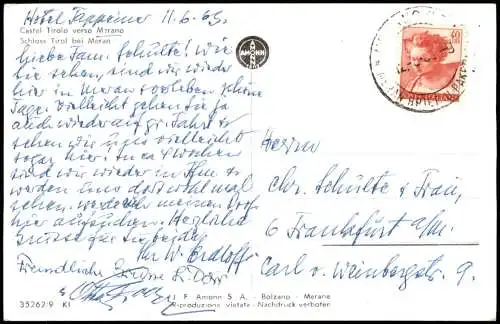 Hotel Tappeiner 11.6.63.
Castel Tirolo verso Merano
Schloss Tirol bei Meran
AMONN
Liebe Fam. Schulte! Wie
Sie sehen, sind wir wieder
hier in Meran u. erleben schöne
Tage. Vielleicht gehen Sie ja
auch wieder auf Fahrt so
sehen wir uns vielleicht
sogar hier. In ca 4 Wochen
sind wir wieder in
werden uns dort wohl mal
sehen. werde ich meinen
hier aufsuchen. Herzliche
Grüsse für Sie beide
Ihr W. Erdloff
Freundliche Grüsse
Herrn
Chr. Schulte & Frau,
6 Frankfurt a/M.
Carl v. Weinbergstr. 9.
35262/9 KI
J. F. Amonn S. A. - Bolzano - Merano
Riproduzione vietata - Nachdruck verboten